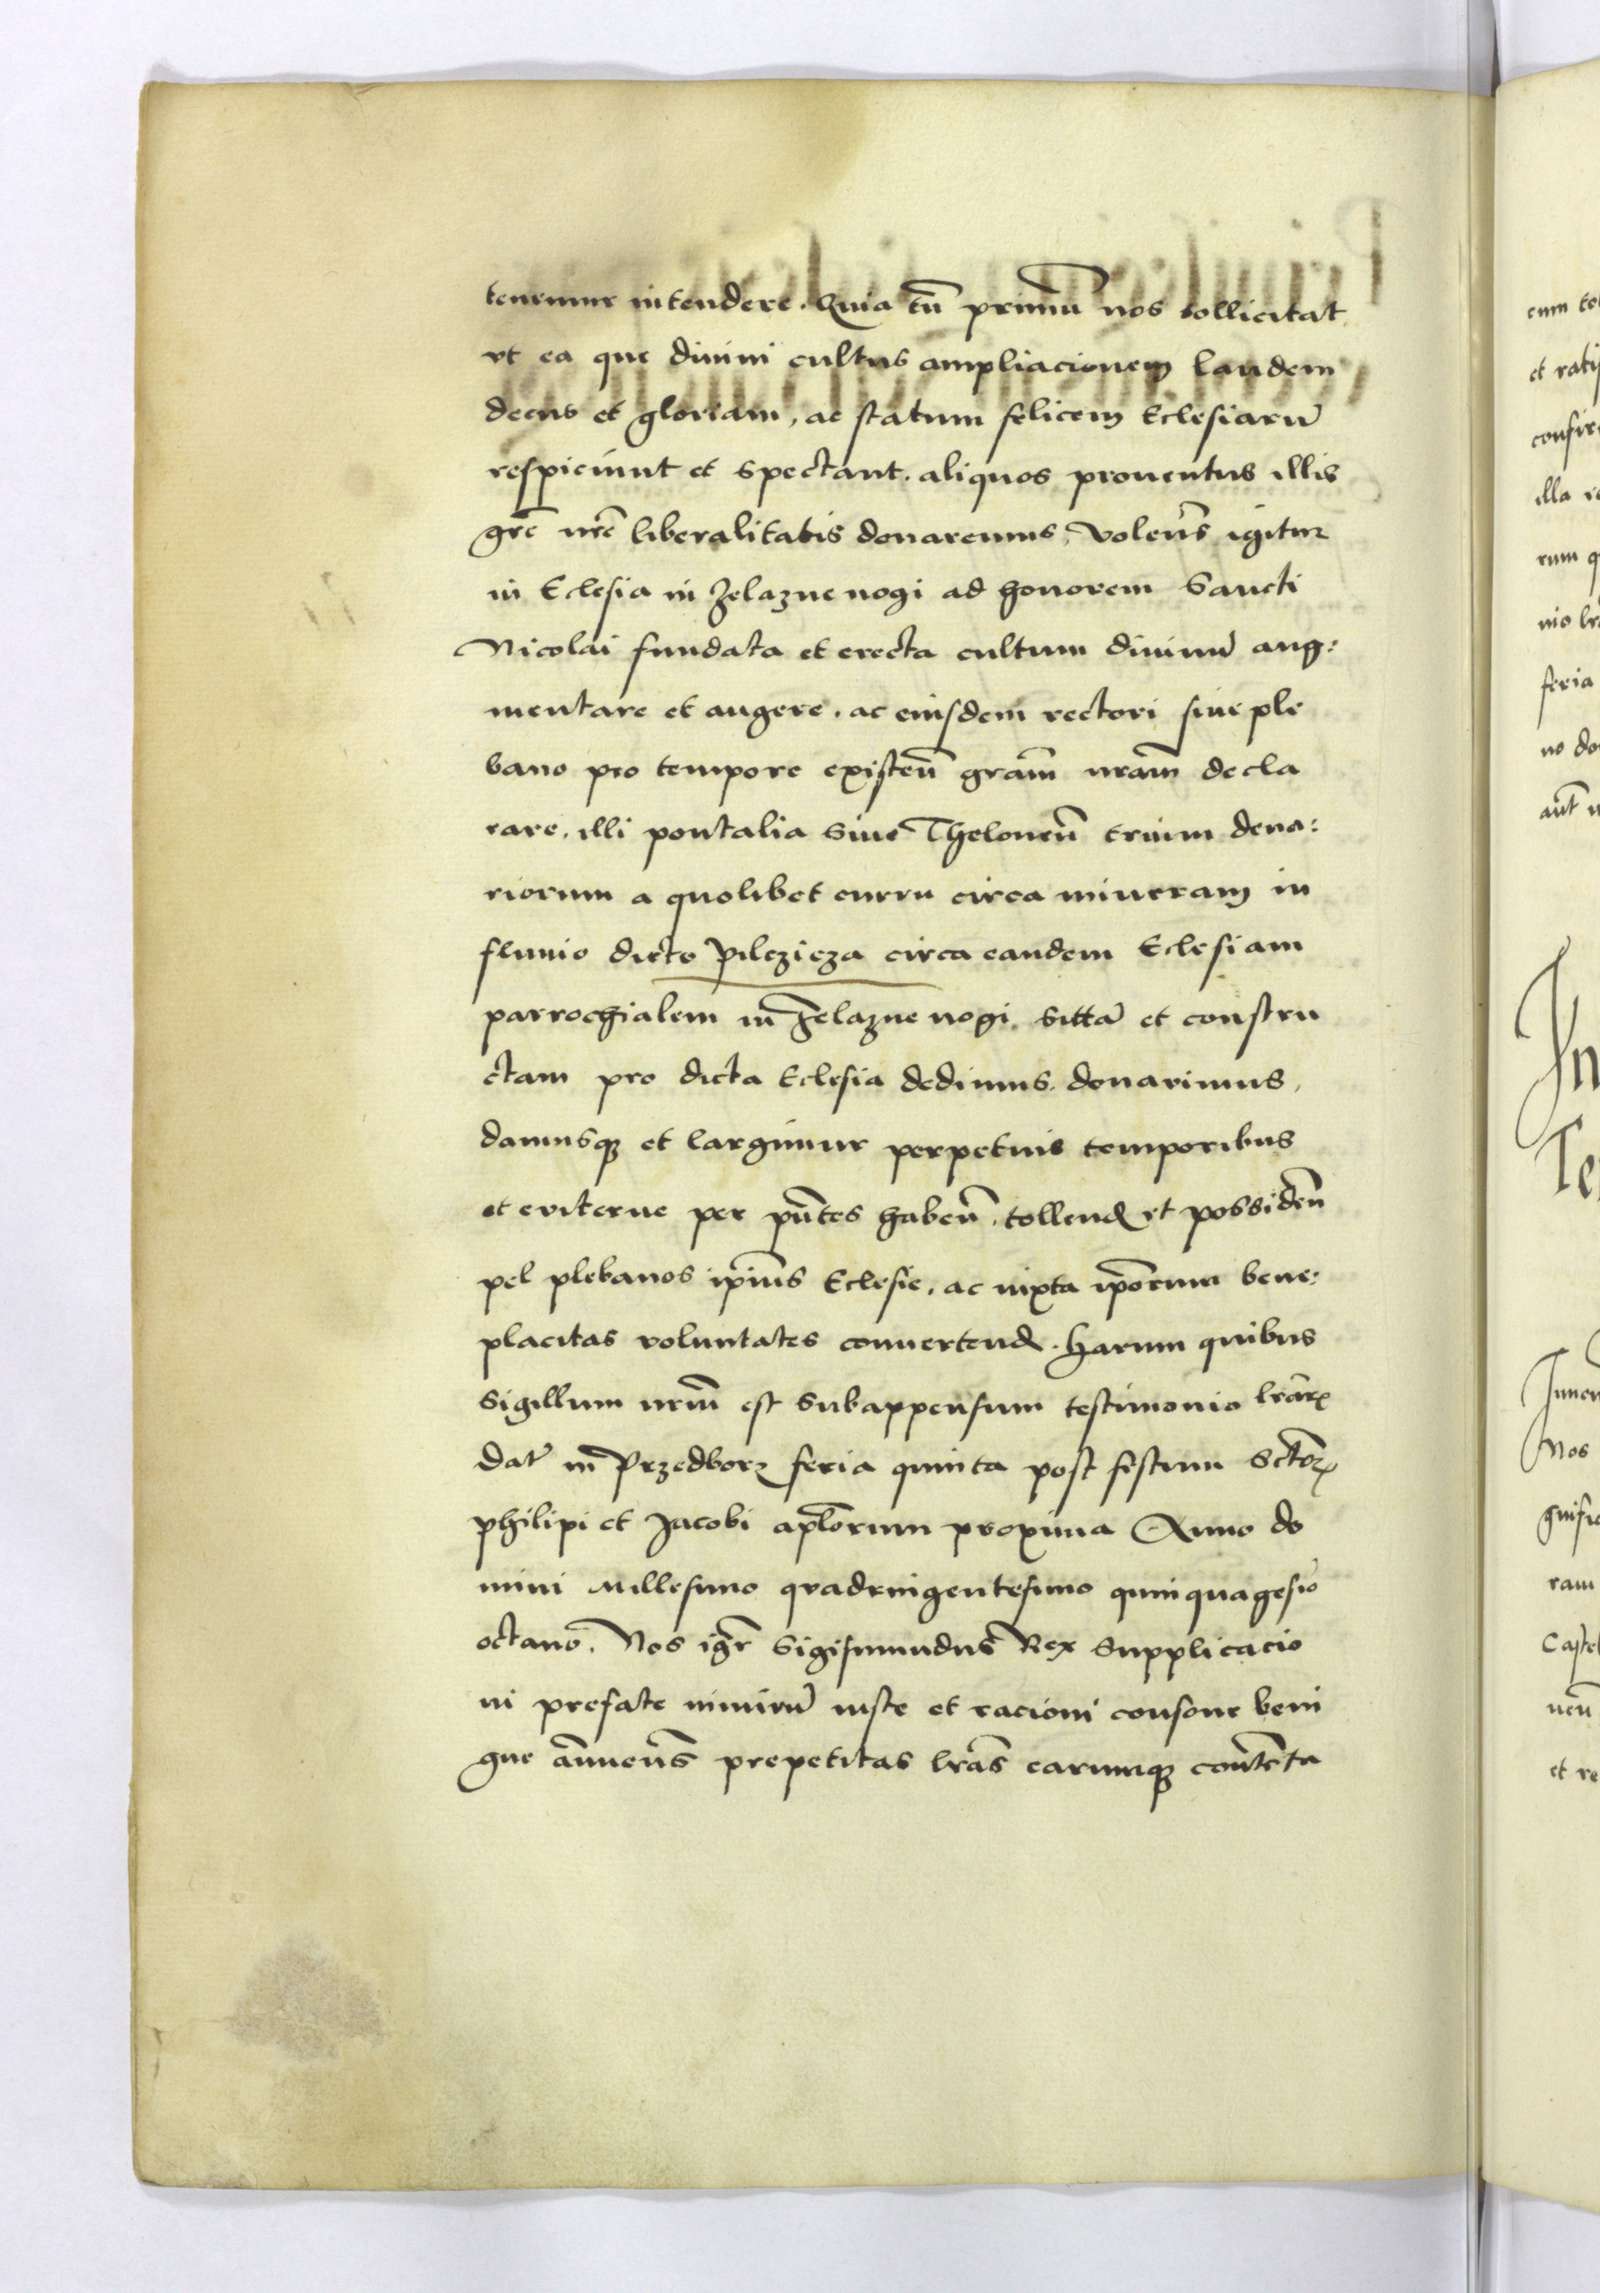 tenemur intendere. Quia tū primū nos sollicitat
vt ea que diuini cultus ampliacionem laudem
decus et gloriam, ac statum felicem Eclesiarū
respiciunt et spectant. aliquos prouentus illis
grē nrē liberalitatis donaremus, Volen̄s igitur
in Eclesia in Zelazne nogi ad honorem Sancti
Nicolai fundata et erecta cultum diuinū aug:
mentare et augere. ac eiusdem rectori siue ple
bano pro tempore existen̄ gram̄ nram̄ decla
rare. illi pontalia siue Thelonen̄ trium dena:
riorum a quolibet curru circa mineram in
fluuio dicto Pilczicza circa eandem Eclesiam
parrochialem in Zelazne nogi sittā et constru
ctam pro dicta Eclesia dedimus. donauimus,
damusq3 et largimur perpetuis temporibus
et euiterne per pn̄tes haben̄. tollend et possiden̄
pel plebanos ip̄ius Eclesie. ac iuxta ip̄orum bene:
placitas voluntates conuertend. Harum quibus
sigillum nrūm est subappensum testimonio lrārꝝ
dat̄ in Przedborz feria quinta post festum Sctōrꝝ
philipi et Jacobi apl̄orum proxima Anno do
mini Millesimo quadringentesimo quinquagesīo
octauo. Nos igr̄ Sigismundus Rex Supplicacio
ni prefate nimirū iuste et racioni consone beni
gne an̄nuen̄s prepetitas lrās earumq3 contēta